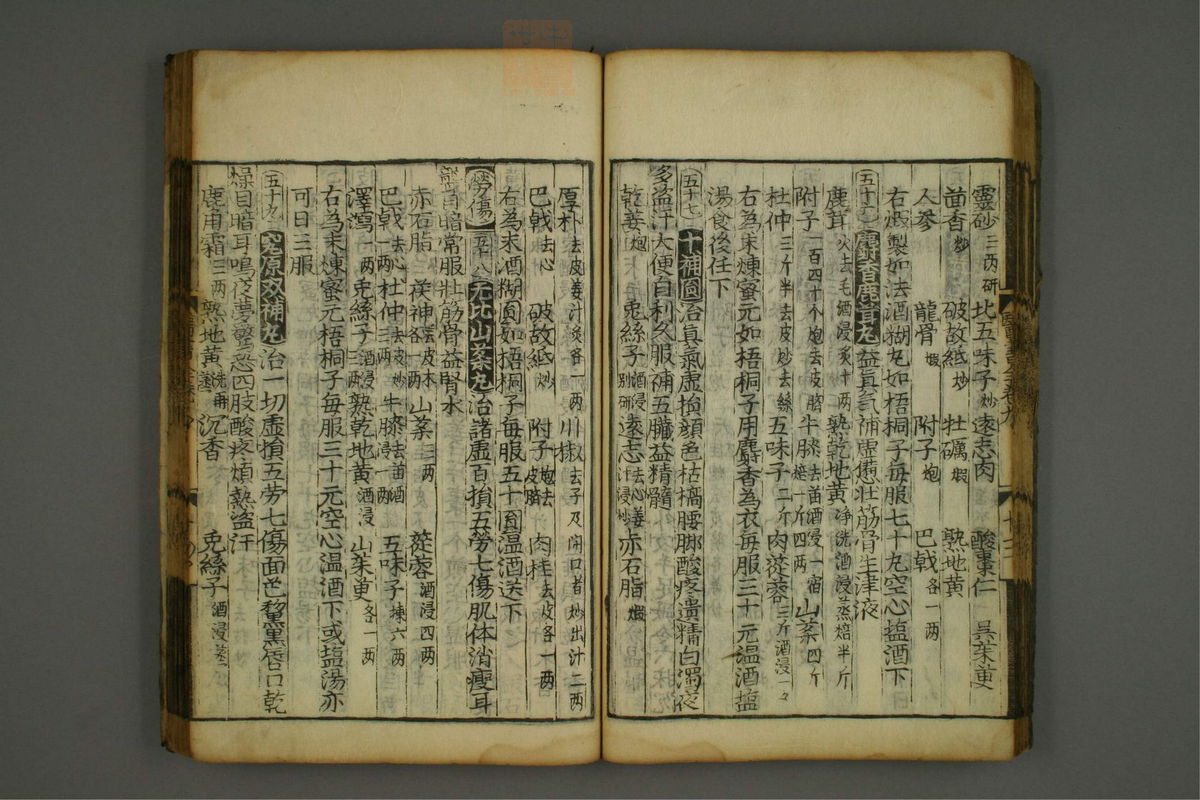 靈砂三两研 比五味子炒 遠志肉 酸棗仁 吳茱萸
茴香炒 破故紙炒 牡礪煅 熟地黄
人參 龍骨煅 附子炮 巴戟各一两
右製如法酒糊丸如梧桐子每服七十丸空心塩酒下
五十六 麝香鹿茸丸 益真気補虚憊壮筋骨生津液
鹿茸火去毛酒浸炙十两 熟乾地黄净洗酒浸蒸焙半斤
附子一百四十个炮去皮脐 牛膝去苗酒浸一宿焙一斤四两 山薬四斤
杜仲三斤半去皮炒去絲 五味子二斤 肉蓯蓉三斤酒浸一
右為末煉蜜元如梧桐子用麝香為衣每服三十元温酒塩
湯食後任下
五十七 十補圓 治真氣虚損顔色枯槁腰脚酸疼遺精白濁夜
多盗汗大便自利久服補五臓益精髓
乾姜炮 兎絲子酒浸别研 遠志去心姜汁浸炒 赤石脂煅
厚朴去皮姜汁炙各一两 川椒去子及闭口者炒出汁二两
巴戟去心 破故紙炒 附子炮去皮臍 肉桂去皮各一两
右為末酒糊圓如梧桐子每服五十圓温酒送下
劳傷 五十八 无比山薬丸 治諸虚百損五劳七傷肌体消瘦耳
聾目暗常服壮筋骨益腎水
赤石脂 茯神去皮木各一两 山薬三两 蓯蓉酒浸四两
巴戟去心一两 杜仲去皮炒三两 牛膝去苗酒浸一两 五味子揀六两
澤瀉一两 兎絲子酒浸三两 熟乾地黄酒浸 山茱萸各一两
右為末煉蜜元梧桐子每服三十元空心温酒下或塩湯亦
可日三服
五十九 究原双補丸 治一切虚損五劳七傷面色黧黒唇口乾
燥目暗耳鳴夜夢驚恐四肢酸疼煩熱盗汗
鹿角霜三两 熟地黄洗再蒸 沉香 兎絲子酒浸蒸